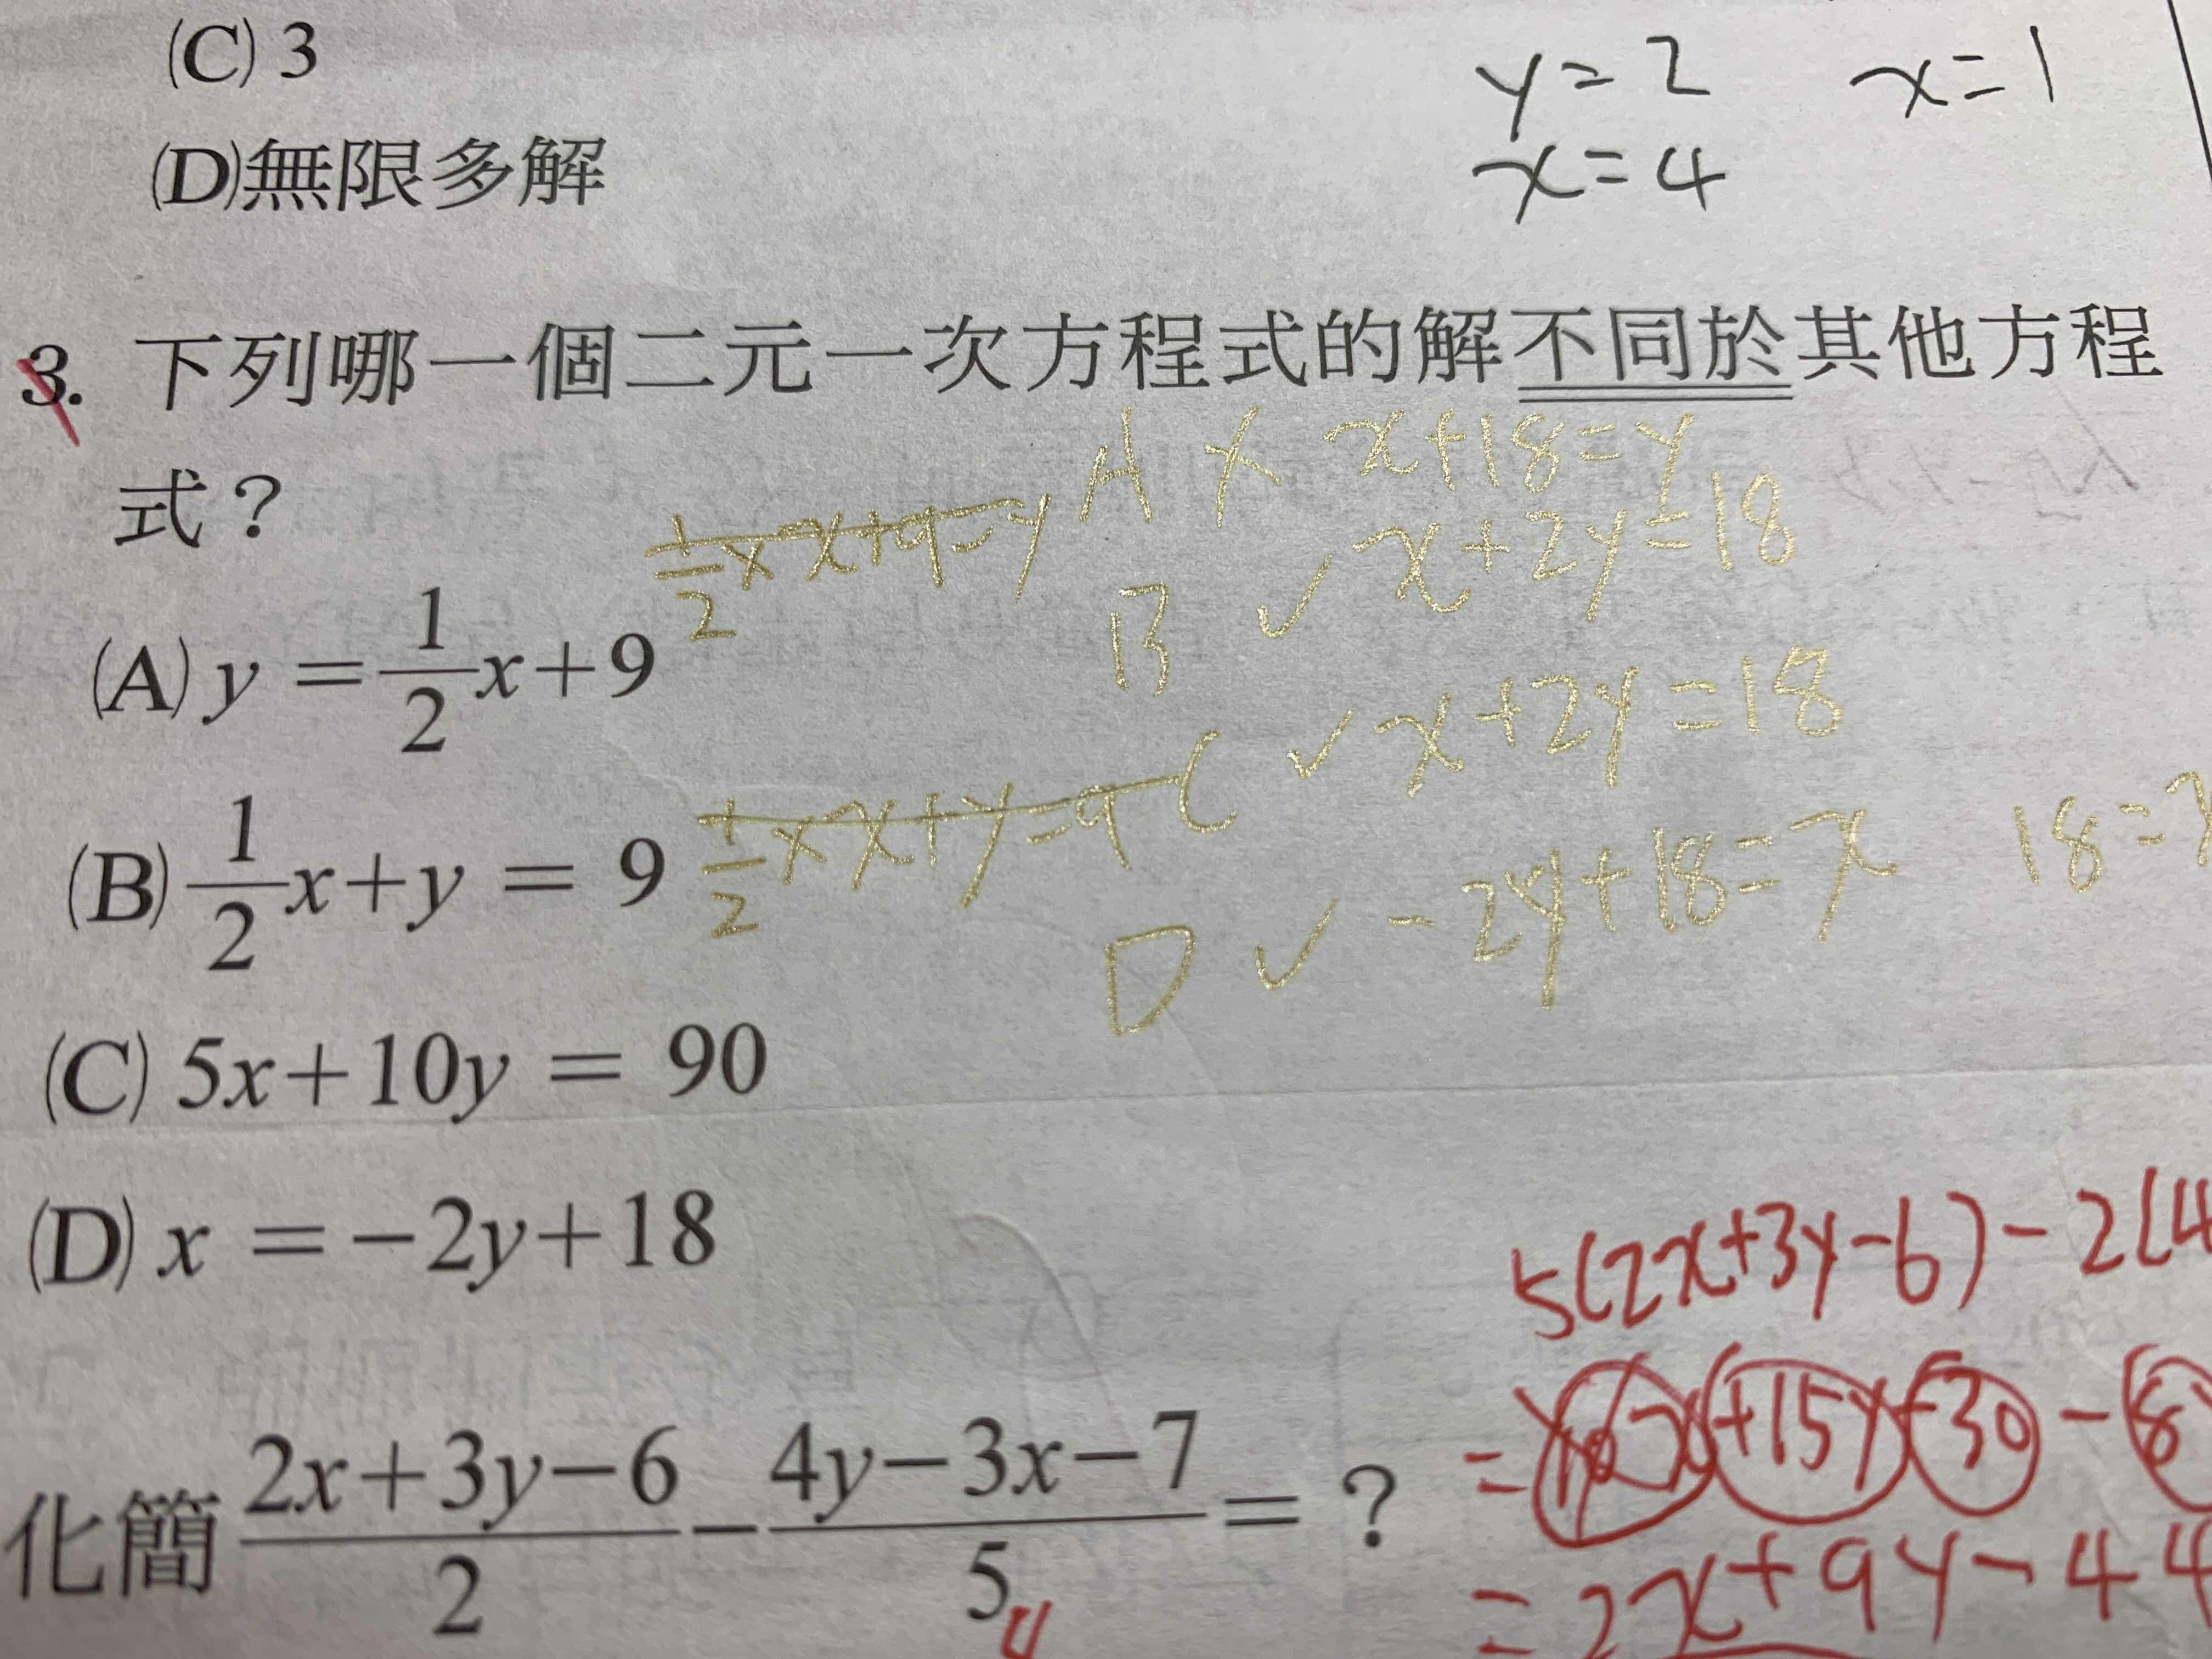 (C) 3
y=2 x=1
(D)無限多解
x=4
3. 下列哪一個二元一次方程式的解不同於其他方程
式？
A × x+18=y
½×x+9=y
B ✓ x+2y=18
(A) y = 1/2 x+9
C ✓ x+2y=18
(B) 1/2 x+y = 9
½×x+y=9
D ✓ -2y+18=x
18=
(C) 5x+10y = 90
(D) x = −2y+18
5(2x+3y-6)-2(4
化簡 2x+3y−6/2 − 4y−3x−7/5 = ？
+15y-30-(8
=2x+9y-44